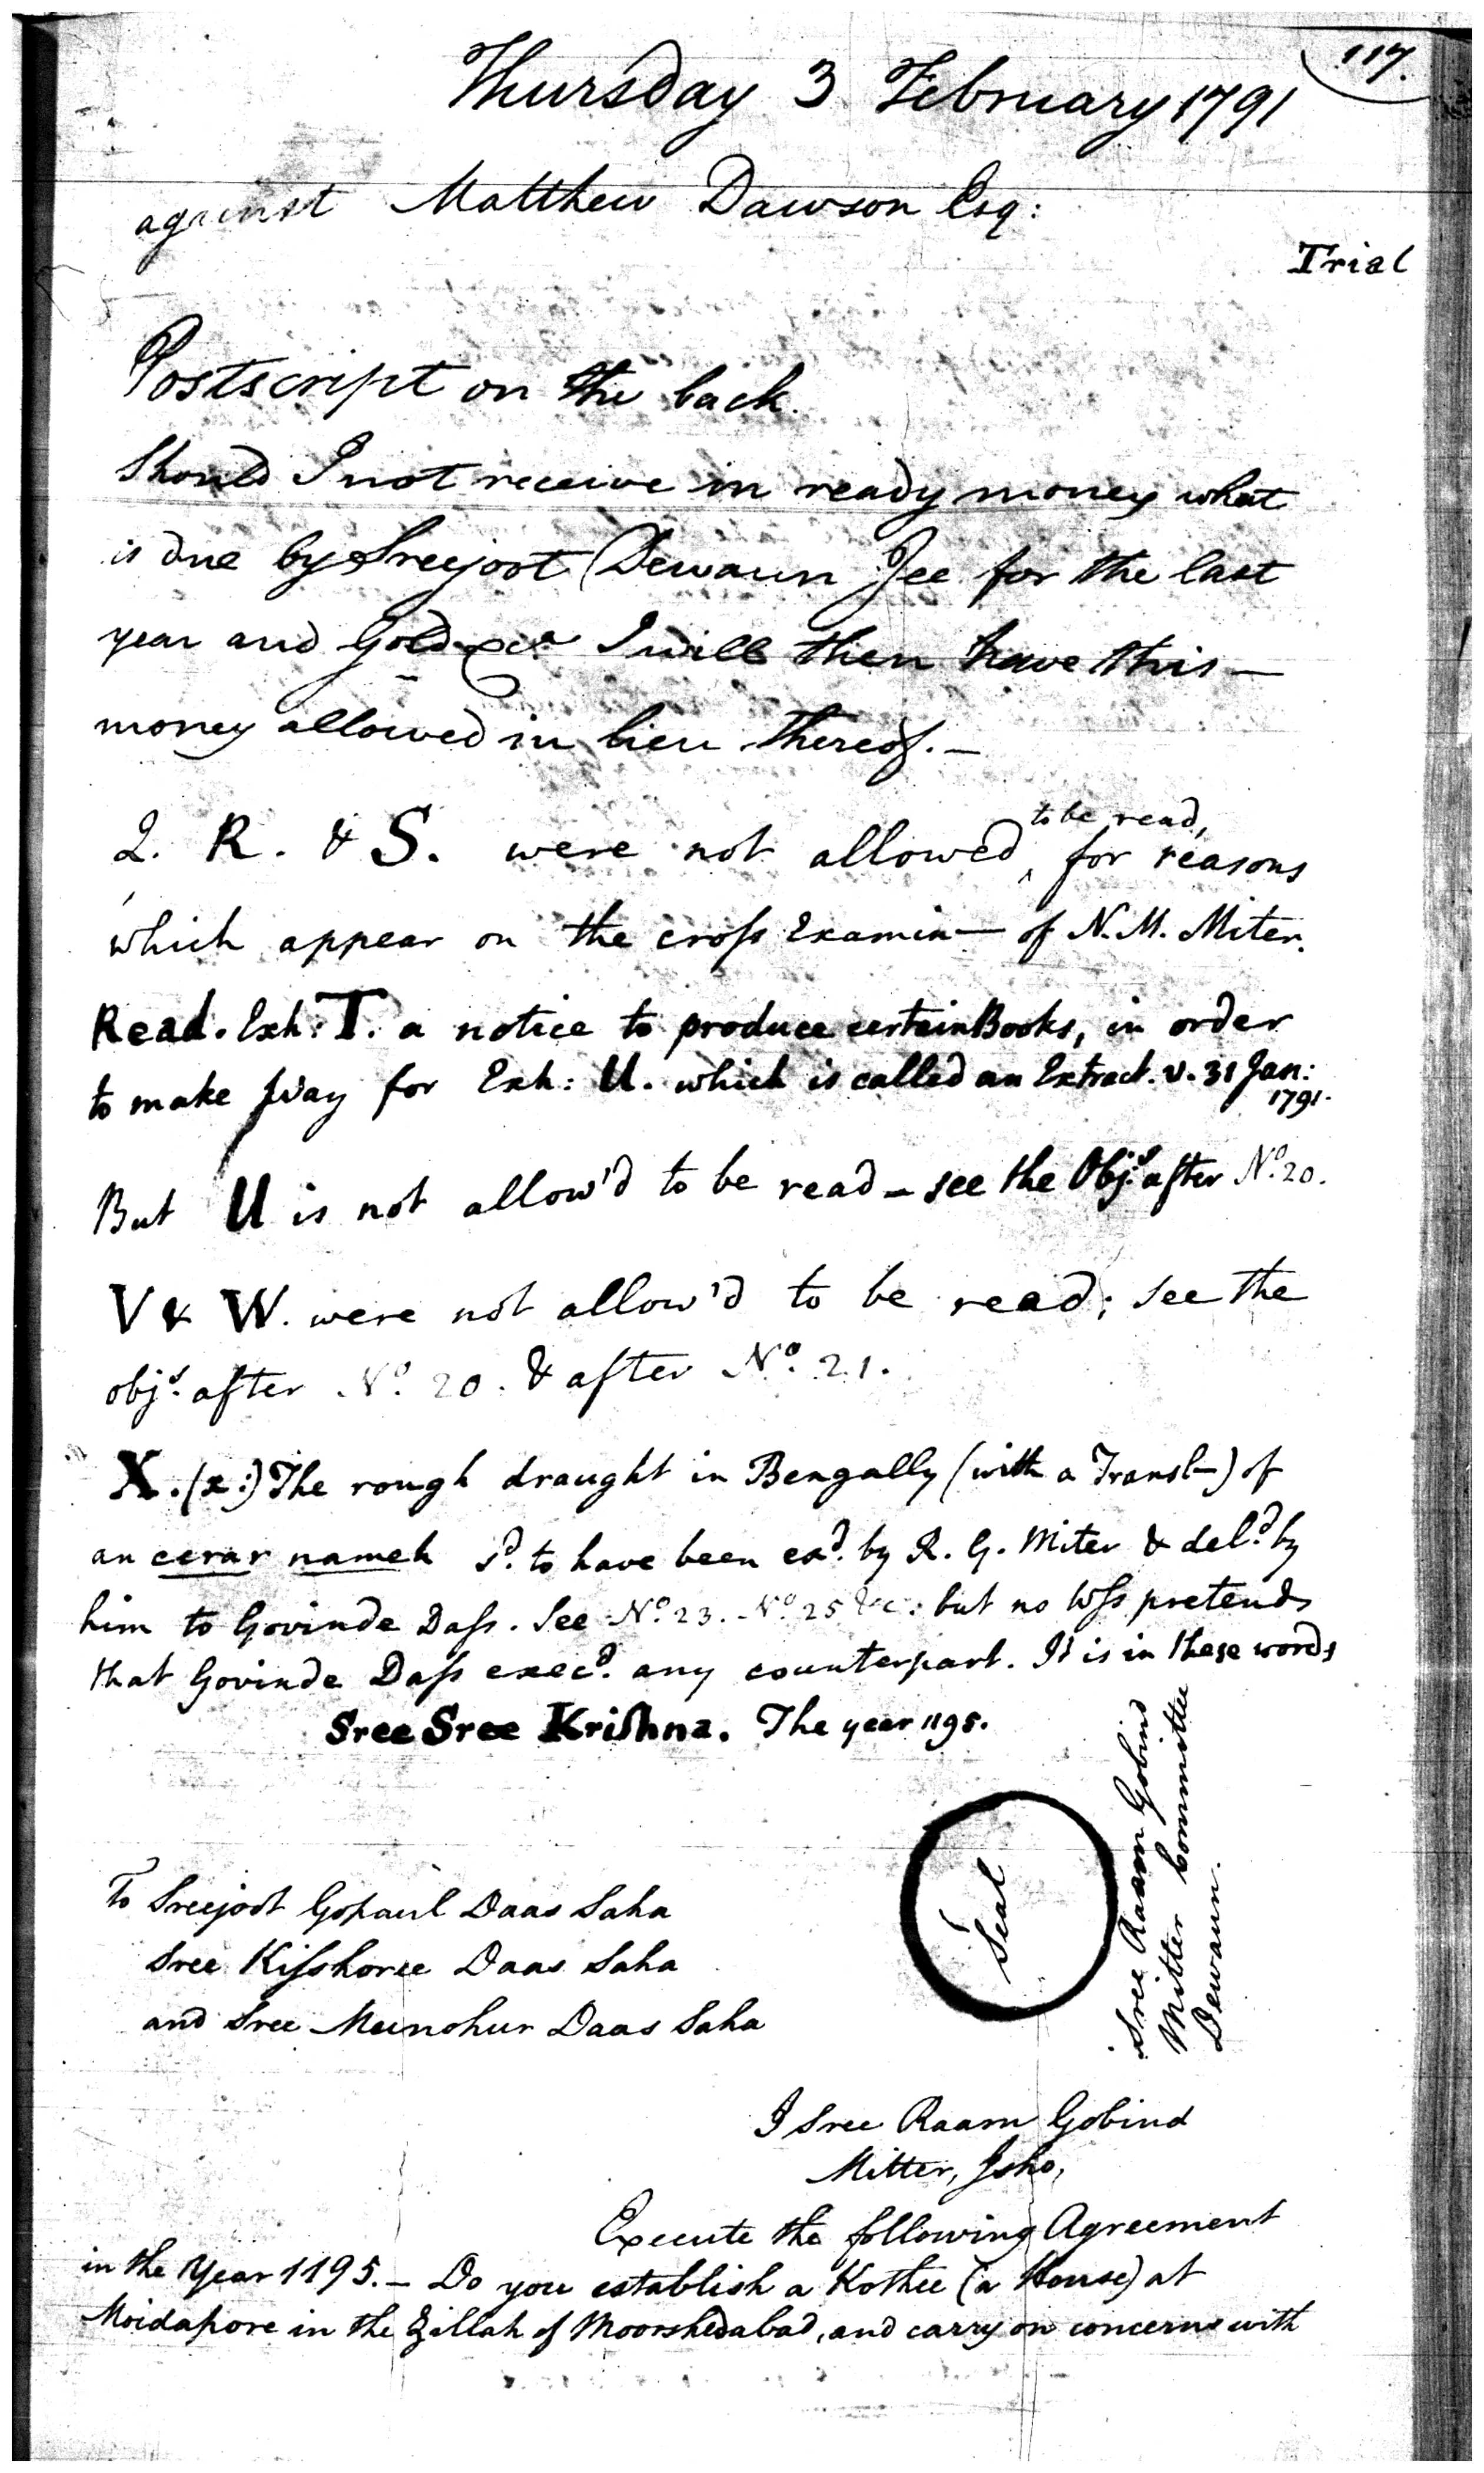 117.
Thursday 3 February 1791
against Matthew Dawson Esq:
Trial
Postscript on the back.
Should I not receive in ready money what
is due by Sreejoot Dewaun Jee for the last
year and Gold &ca. I will then have this —
money allowed in lieu thereof. —
Q. R. & S. were not allowed to be read, for reasons
which appear on the cross Examin— of N. M. Miter.
Read. Exh: T. a notice to produce certain Books, in order
to make way for Exh: U. which is called an Extract. v. 31 Jan:
1791.
But U is not allow'd to be read — see the Objs. after No. 20.
V & W. were not allow'd to be read; see the
objs. after No. 20. & after No. 21.
X. (x:) The rough draught in Bengally (with a Transl—) of
an cerar nameh sd. to have been exd. by R. G. Miter & deld. by
him to Govinde Dass. See No. 23. No. 25 &c: but no Wss pretends
that Govinde Dass execd. any counterpart. It is in these words
Sree Sree Krishna. The year 1195.
Seal
Sree Raam Gobind
Mitter Committee
Dewaun.
To Sreejoot Gopaul Daas Saha
Sree Kisshoree Daas Saha
and Sree Munohur Daas Saha
I Sree Raam Gobind
Mitter, Jsho,
Execute the following Agreement
in the Year 1195. — Do you establish a Kothee (a House) at
Moidapore in the Zillah of Moorshedabad, and carry on concerns with